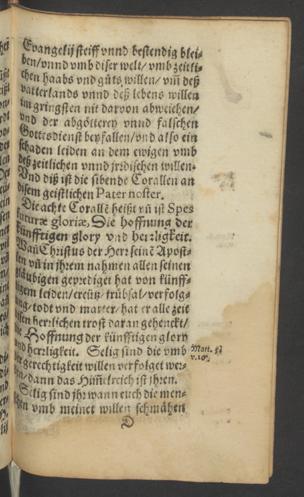 Evangelij steiff vnnd bestendig blei-
ben/vnnd vmb diser welt/ vmb zeitli-
chen haabs vnd gůts willen/ vm̃ deß
vatterlands vnnd deß lebens willen
im gringsten nit darvon abweichen/
vnd der abgötterey vnnd falschen
Gottesdienst beyfallen/ vnd also ein
schaden leiden an dem ewigen vmb
deß zeitlichen vnnd jrdischen willen.
Vnd diß ist die sibende Corallen an
disem geistlichen Pater noster.
Die achte Corallẽ heißt vñ ist Spes
futuræ gloriæ, Die hoffnung der
künfftigen glory vnd herrligkeit.
Wañ Christus der Herr seinẽ Apost-
len vñ in jhrem nahmen allen seinen
gläubigen geprediget hat von künff-
tigem leiden/ creütz/ trübsal/ verfolg-
ung/ todt vnd marter/ hat er alle zeit
den herrlichen trost daran gehenckt/
Hoffnung der künfftigen glory
vnd herrligkeit. Selig sind die vmb
der gerechtigkeit willen verfolget wer-
den/ dann das Him̃elreich ist jhren.
Selig sind jhr wann euch die men-
schen vmb meinet willen schmähen
Matt. 5
v. 10.
D